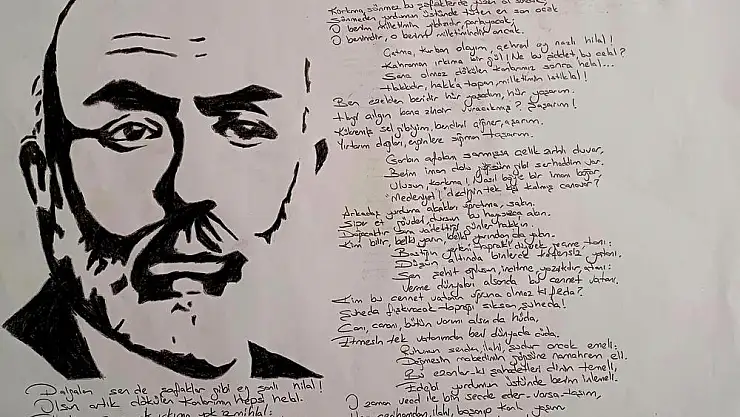 Korkma, sönmez bu şafaklarda yüzen al sancak,
Sönmeden yurdumun üstünde tüten en son ocak
O benim milletimin yıldızıdır, parlayacak;
O benimdir, o benim milletimindir ancak.
Çatma, kurban olayım, çehreni ey nazlı hilal!
Kahraman ırkıma bir gül! Ne bu şiddet, bu celal?
Sana olmaz dökülen kanlarımız sonra helal...
Hakkıdır, hakka tapan, milletimin istiklal!
Ben ezelden beridir hür yaşadım, hür yaşarım.
Hangi çılgın bana zincir vuracakmış? Şaşarım!
Kükremiş sel gibiyim, bendimi çiğner, aşarım.
Yırtarım dağları, enginlere sığmam taşarım.
Garbın afakını sarmışsa çelik zırhlı duvar,
Benim iman dolu göğsüm gibi serhaddim var.
Ulusun, korkma! Nasıl böyle bir imanı boğar,
"Medeniyet!" dediğin tek diş kalmış canavar?
Arkadaş yurduma alçakları uğratma, sakın.
Siper et gövdeni, dursun bu hayasızca akın.
Doğacaktır sana vadettiği günler hakkın.
Kim bilir, belki yarın, belki yarından da yakın.
Bastığın yerleri "toprak!" diyerek geçme, tanı:
Düşün altında binlerce kefensiz yatanı.
Sen şehit oğlusun, incitme, yazıktır, atanı:
Verme dünyaları alsanda bu cennet vatanı.
Kim bu cennet vatanın uğruna olmaz ki feda?
Şüheda fışkıracak toprağı sıksan, şüheda!
Canı, cananı, bütün varımı alsın da hüda,
Etmesin tek vatanımdan beni dünyada cüda.
Ruhumun senden, ilahi, şudur ancak emeli:
Değmesin mabedimin göğsüne namahrem eli.
Bu ezanlar-ki şahadetleri dinin temeli,
Ebedi yurdumun üstünde benim inlemeli.
O zaman vecd ile bin secde eder-varsa-taşım,
Her cerihamdan, ilahi, boşanıp kanlı yaşım
Dalgalan sen de şafaklar gibi ey şanlı hilal!
Olsun artık dökülen kanlarımın hepsi helal.
ırkıma yok izmihlal: